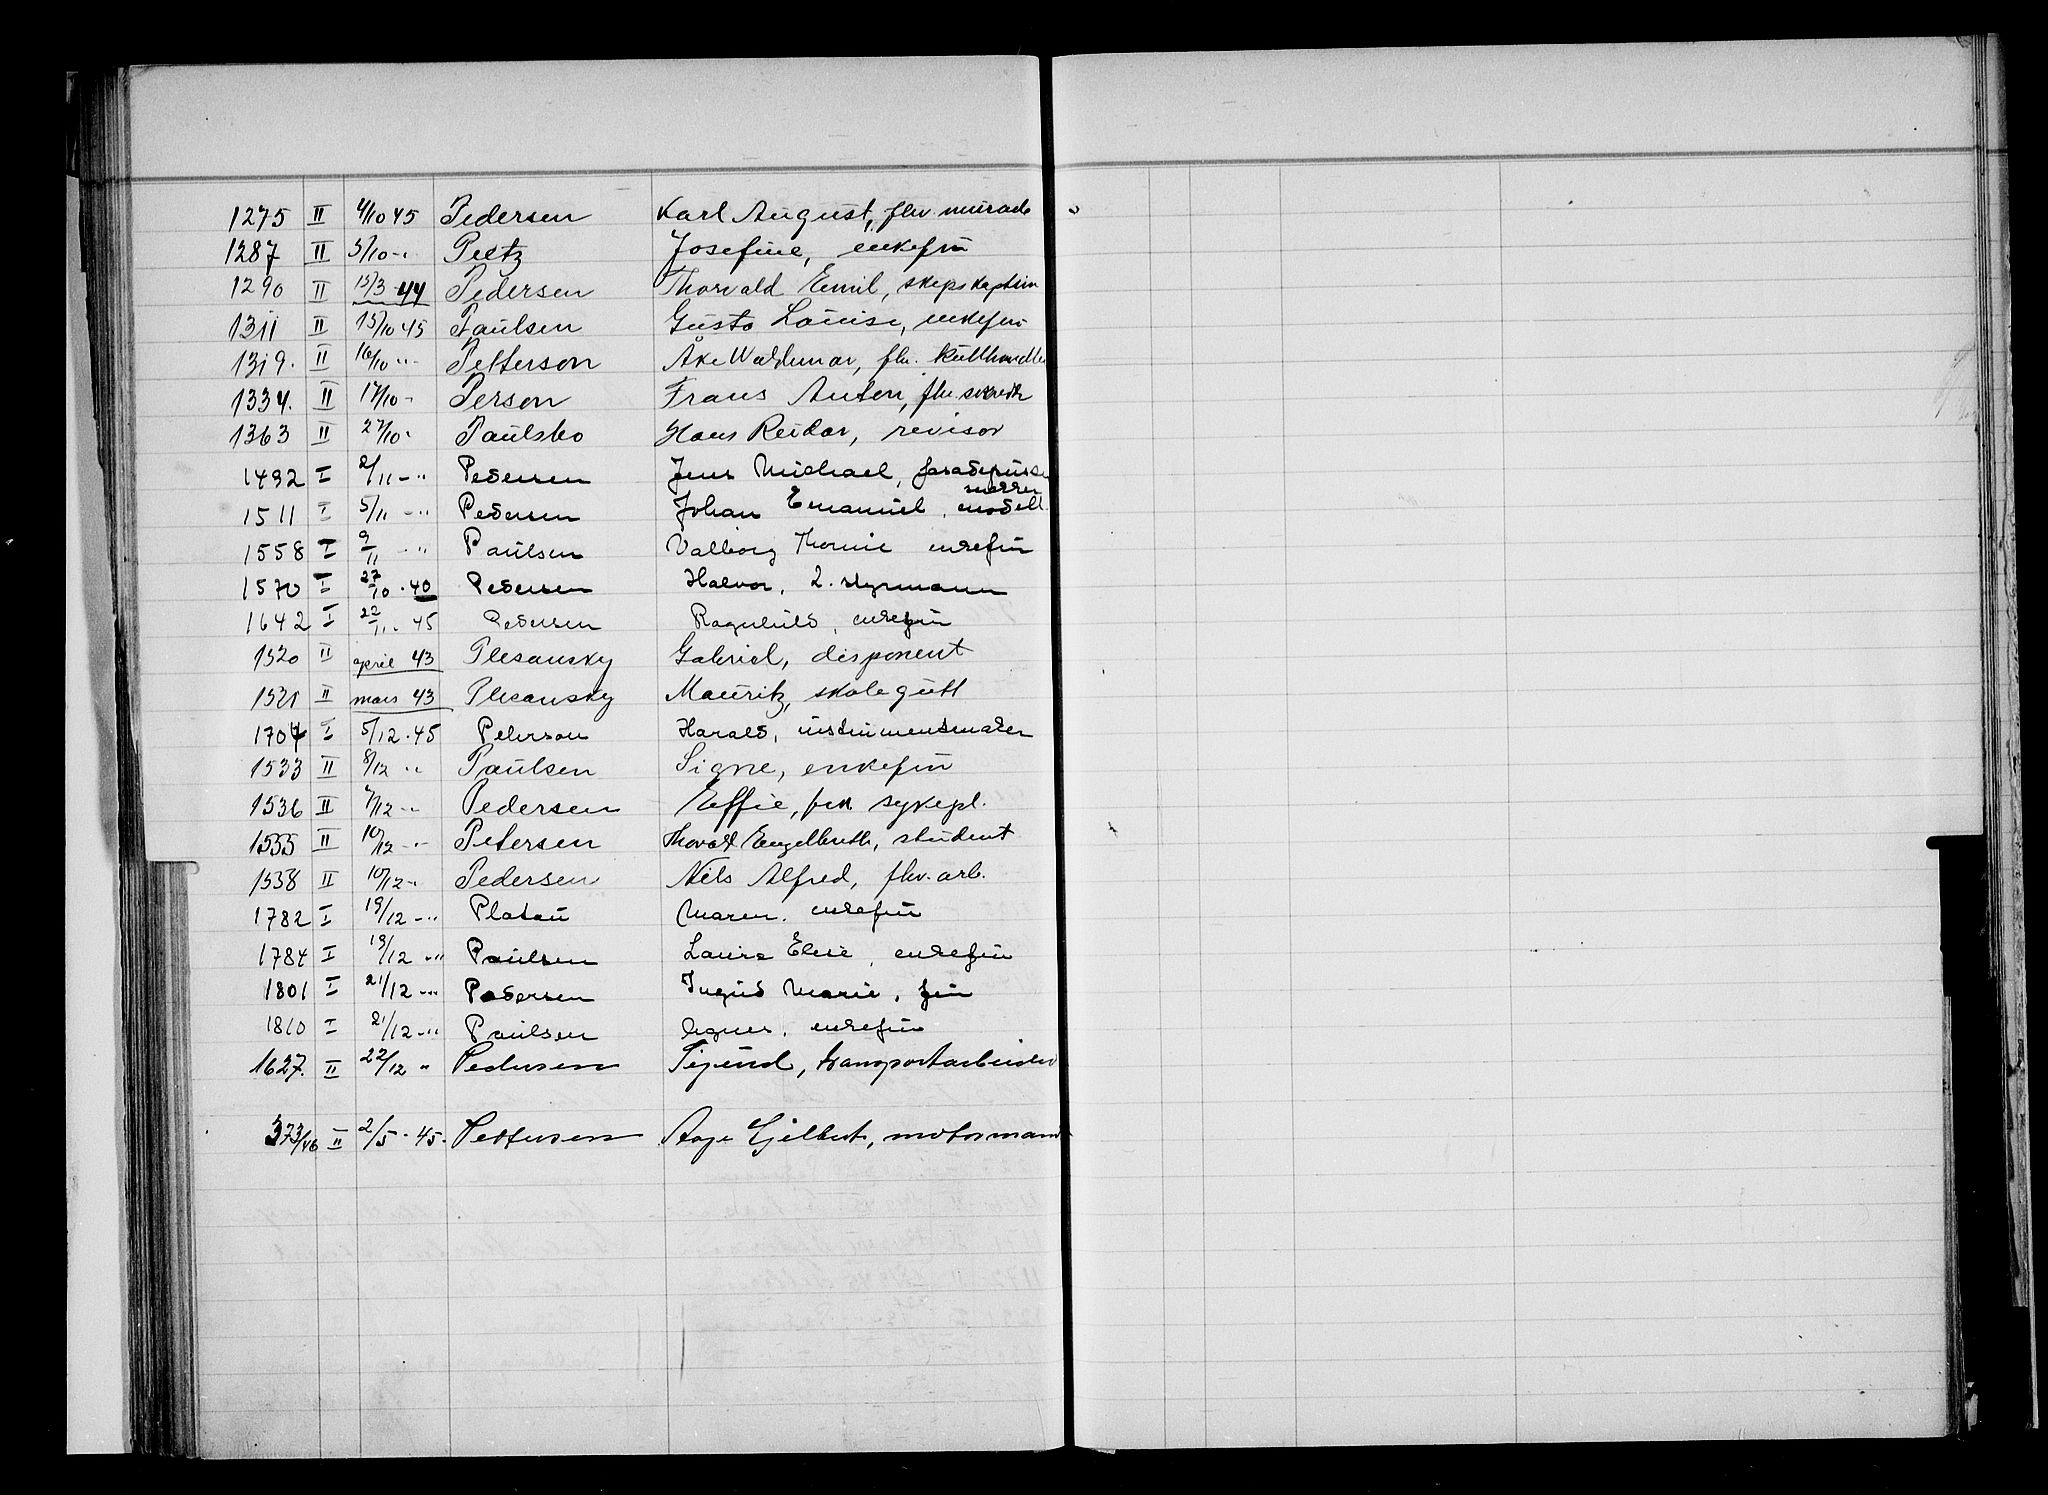 1275 II 4/10 45 Pedersen Karl August, fhv.
1287 II 5/10 -" Peetz Josefine, enkefru
1290 II 15/3 44 Pedersen Thorvald Emil, skipskaptein
1311 II 15/10 45 Paulsen Gusta Louise, enkefru
1319. II 16/10 " Petterson Åke Waldemar, fhv. kullhandler
1334. II 17/10 - Person Frans Anton, fhv.
1363 II 27/10 - Paulsbo Hans Reidar, revisor
1492 I 2/11 - " Pedersen Jens Michael, fasadepusser
1511 I 5/11 - " Pedersen Johan Emanuel, modell snekker
1558 I 9/11 - " Paulsen Valborg enkefru
1570 I 27/10 · 40 Pedersen Halvor, 2. styrmann
1642 I 22/11. 45 Pedersen Ragnhild, enkefru
1520 II april 43 Plesansky Gabriel, disponent
1521 II mars 43 Plesansky Mauritz, skolegutt
1704 I 5/12 · 45 Peterson Harald, instrumentmaker
1533 II 8/12 " Paulsen Signe, enkefru
1536 II 7/12 - Pedersen Effie, frk sykepl.
1535 II 10/12 - " Petersen Engelbreth, student
1538 II 10/12 - Pedersen Nils Alfred, fhv. arb.
1782 I 19/12 - " Platou Maren, enkefru
1784 I 19/12 - " Paulsen Laura Elise, enkefru
1801 I 21/12 - " Pedersen Ingrid Marie, fru
1810 I 21/12 - " Paulsen Agnes, enkefru
1627. II 22/12 " Pedersen transportarbeider
373/46 II 2/5 · 45. Pettersen Aage Gjelbert, motormann